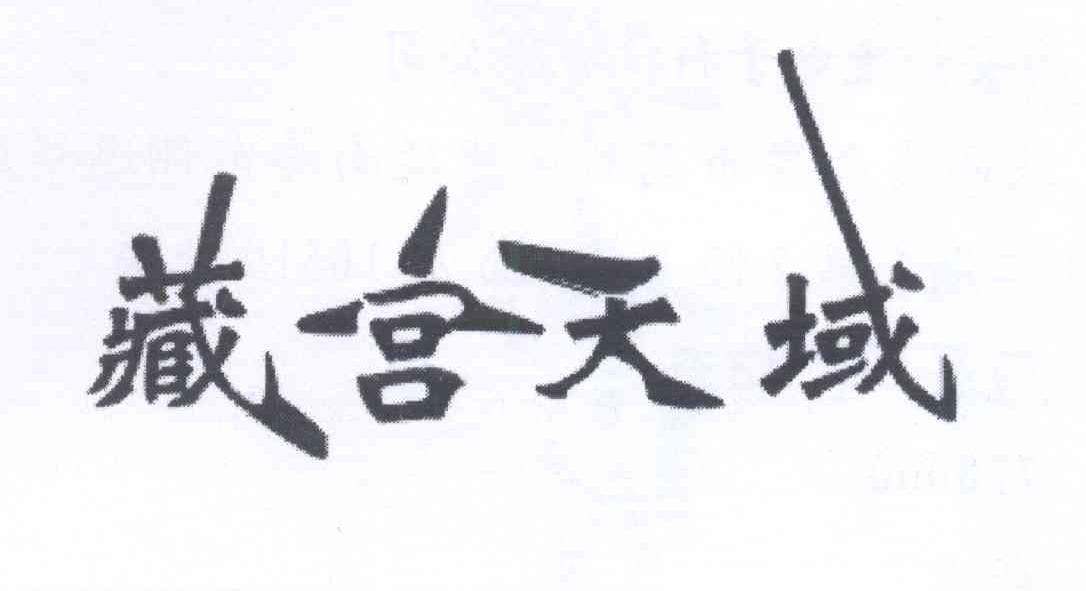 藏宫天域